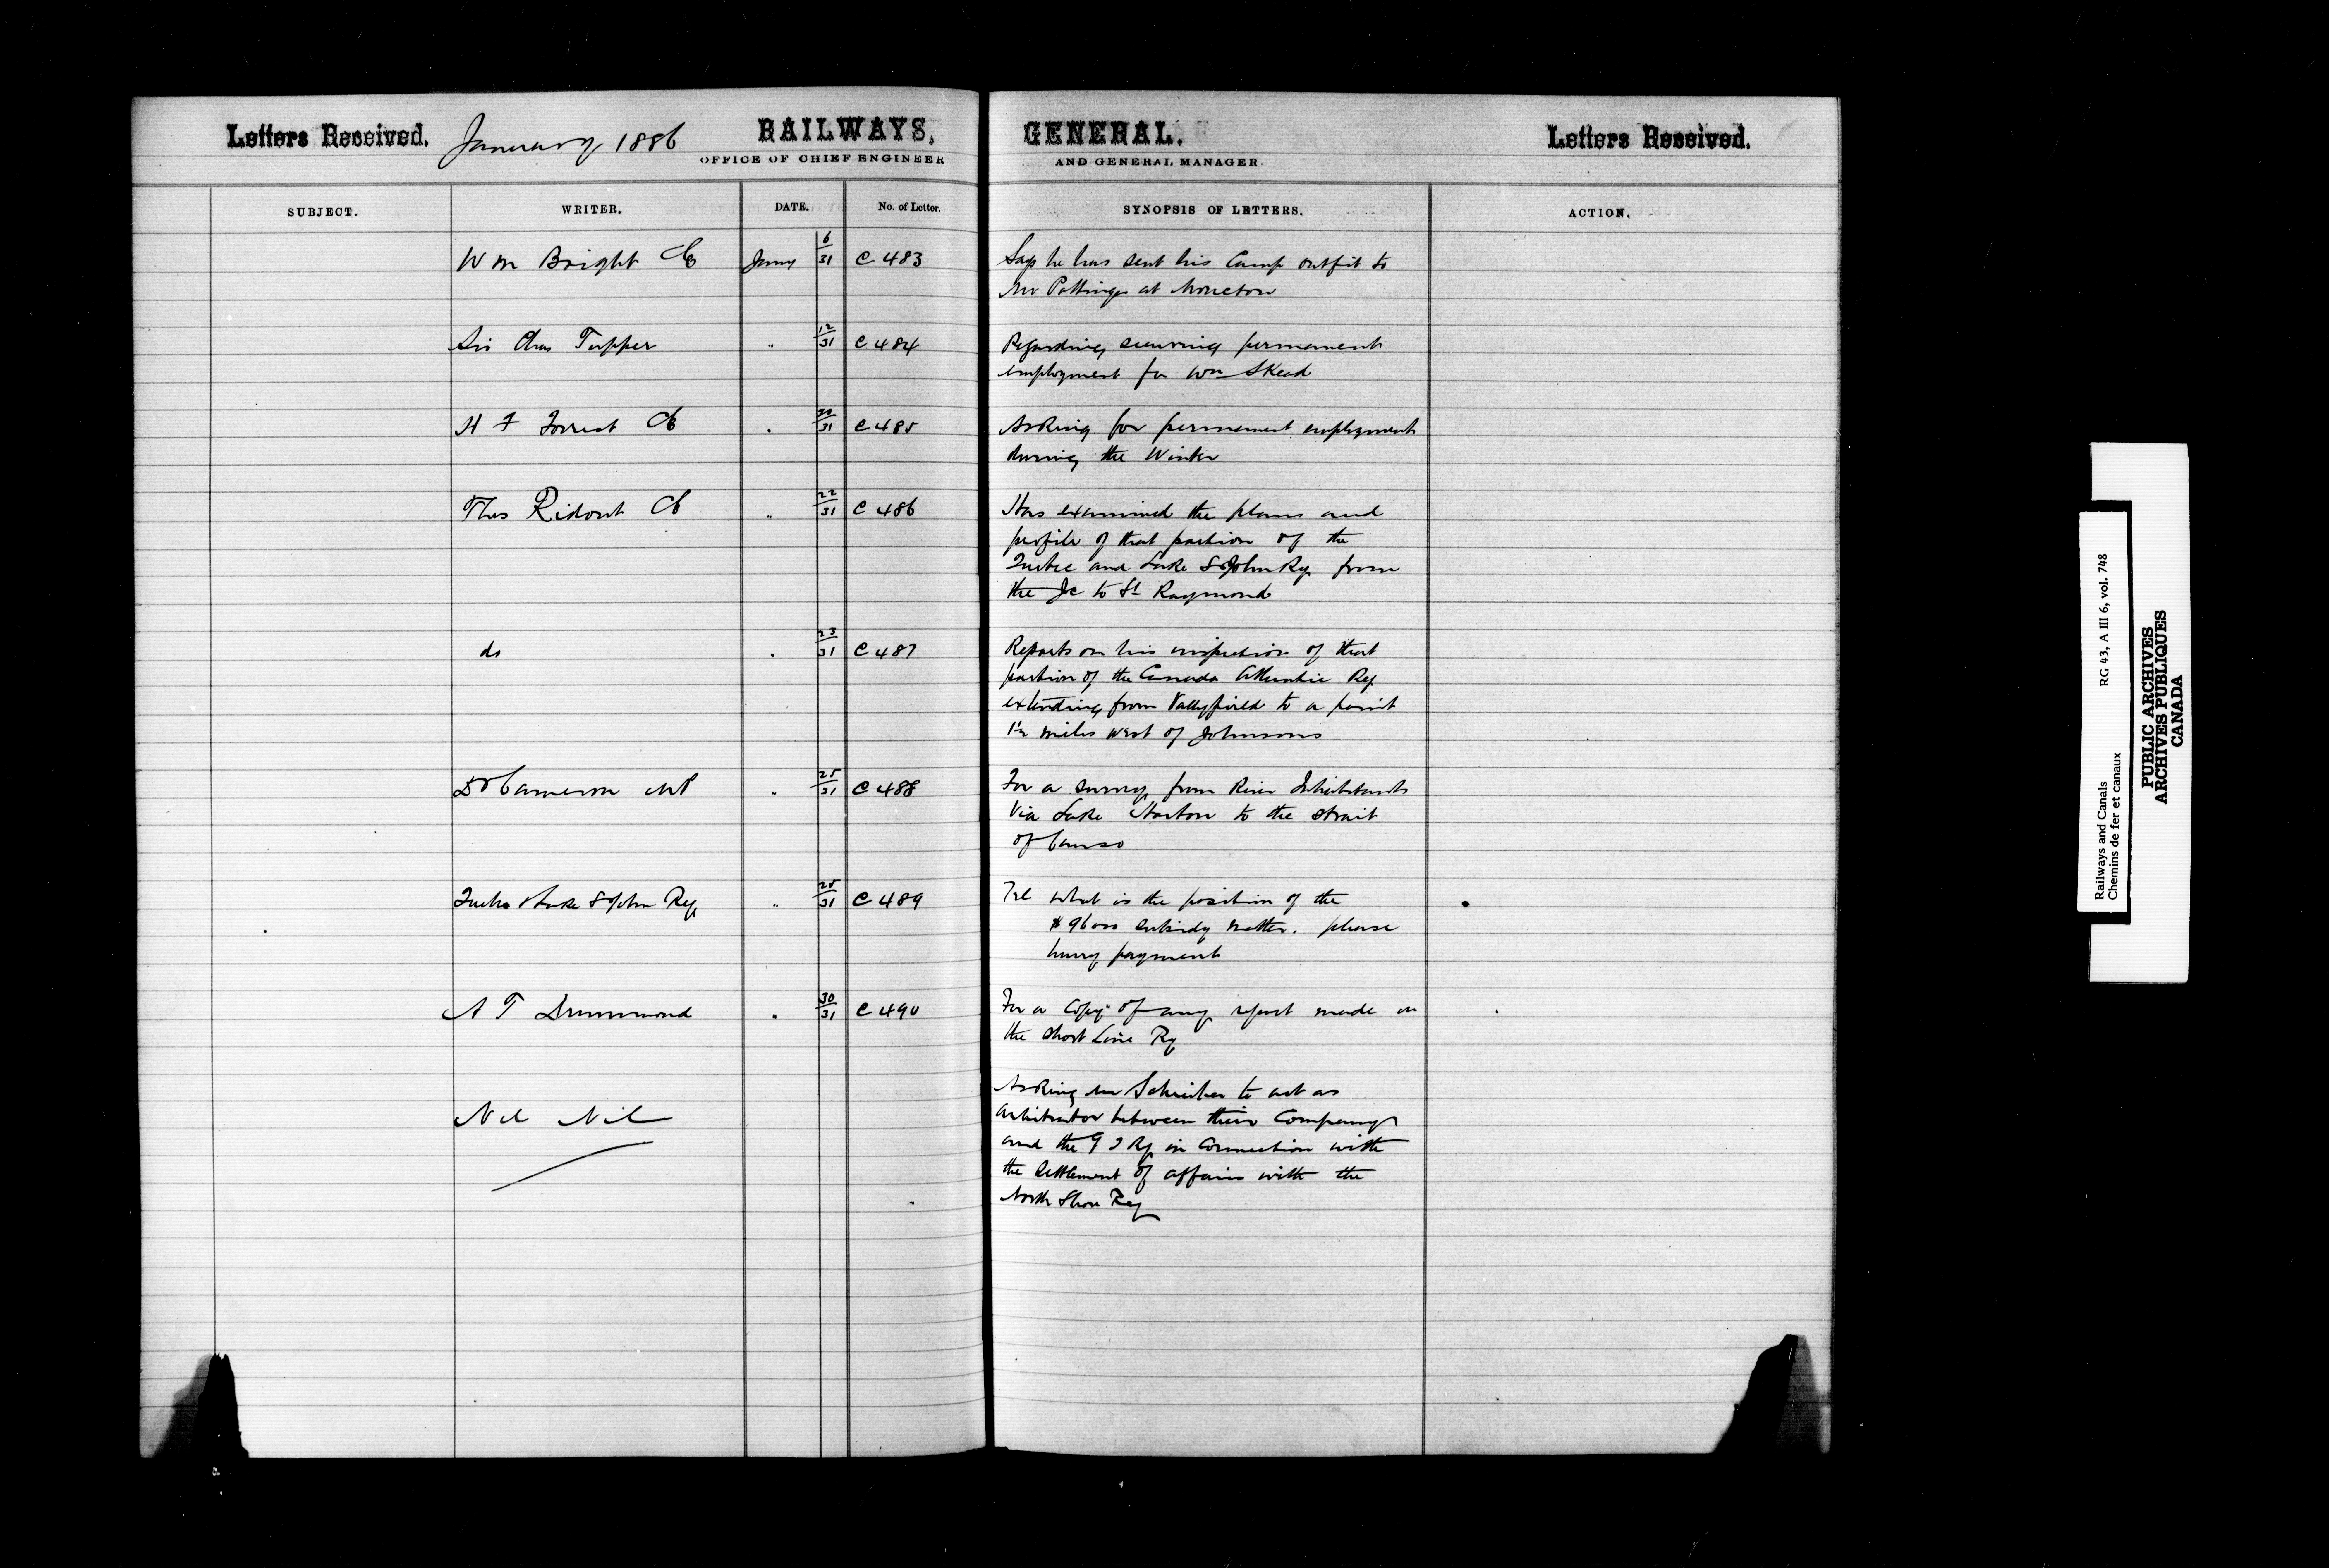 Letters Received. January 1886 RAILWAYS, GENERAL. Letters Received.
OFFICE OF CHIEF ENGINEER AND GENERAL MANAGER.
SUBJECT. WRITER. DATE. No. of Letter. SYNOPSIS OF LETTERS. ACTION.
Wm Bright CE Jany 6/31 C 483 Says he has sent his Camp outfit to
Mr Pottinger at Moncton
Sir Chas Tupper " 12/31 C 484 Regarding securing permanent
employment for Wm Skead
H F Forrest CE " 20/31 C 485 Asking for permanent employment
during the Winter
Thos Ridout CE " 22/31 C 486 Has examined the plans and
profile of that portion of the
Quebec and Lake St John Ry from
the Jc to St Raymond
do " 23/31 C 487 Reports on his inspection of that
portion of the Canada Atlantic Ry
extending from Valleyfield to a point
1½ miles west of Johnsons
Dr Cameron MP " 25/31 C 488 For a survey from River Inhabitants
Via Lake Horton to the Strait
of Canso
Quebec & Lake St John Ry " 25/31 C 489 Tel What is the position of the
$96000 subsidy matter. please
hurry payment
A T Drummond " 30/31 C 490 For a Copy of any report made on
the Short Line Ry
Nil Nil Asking Mr Schreiber to act as
arbitrator between their Company
and the G T Ry in Connection with
the Settlement of affairs with the
North Shore Ry
Railways and Canals RG 43, A III 6, vol. 748
Chemins de fer et canaux
PUBLIC ARCHIVES
ARCHIVES PUBLIQUES
CANADA